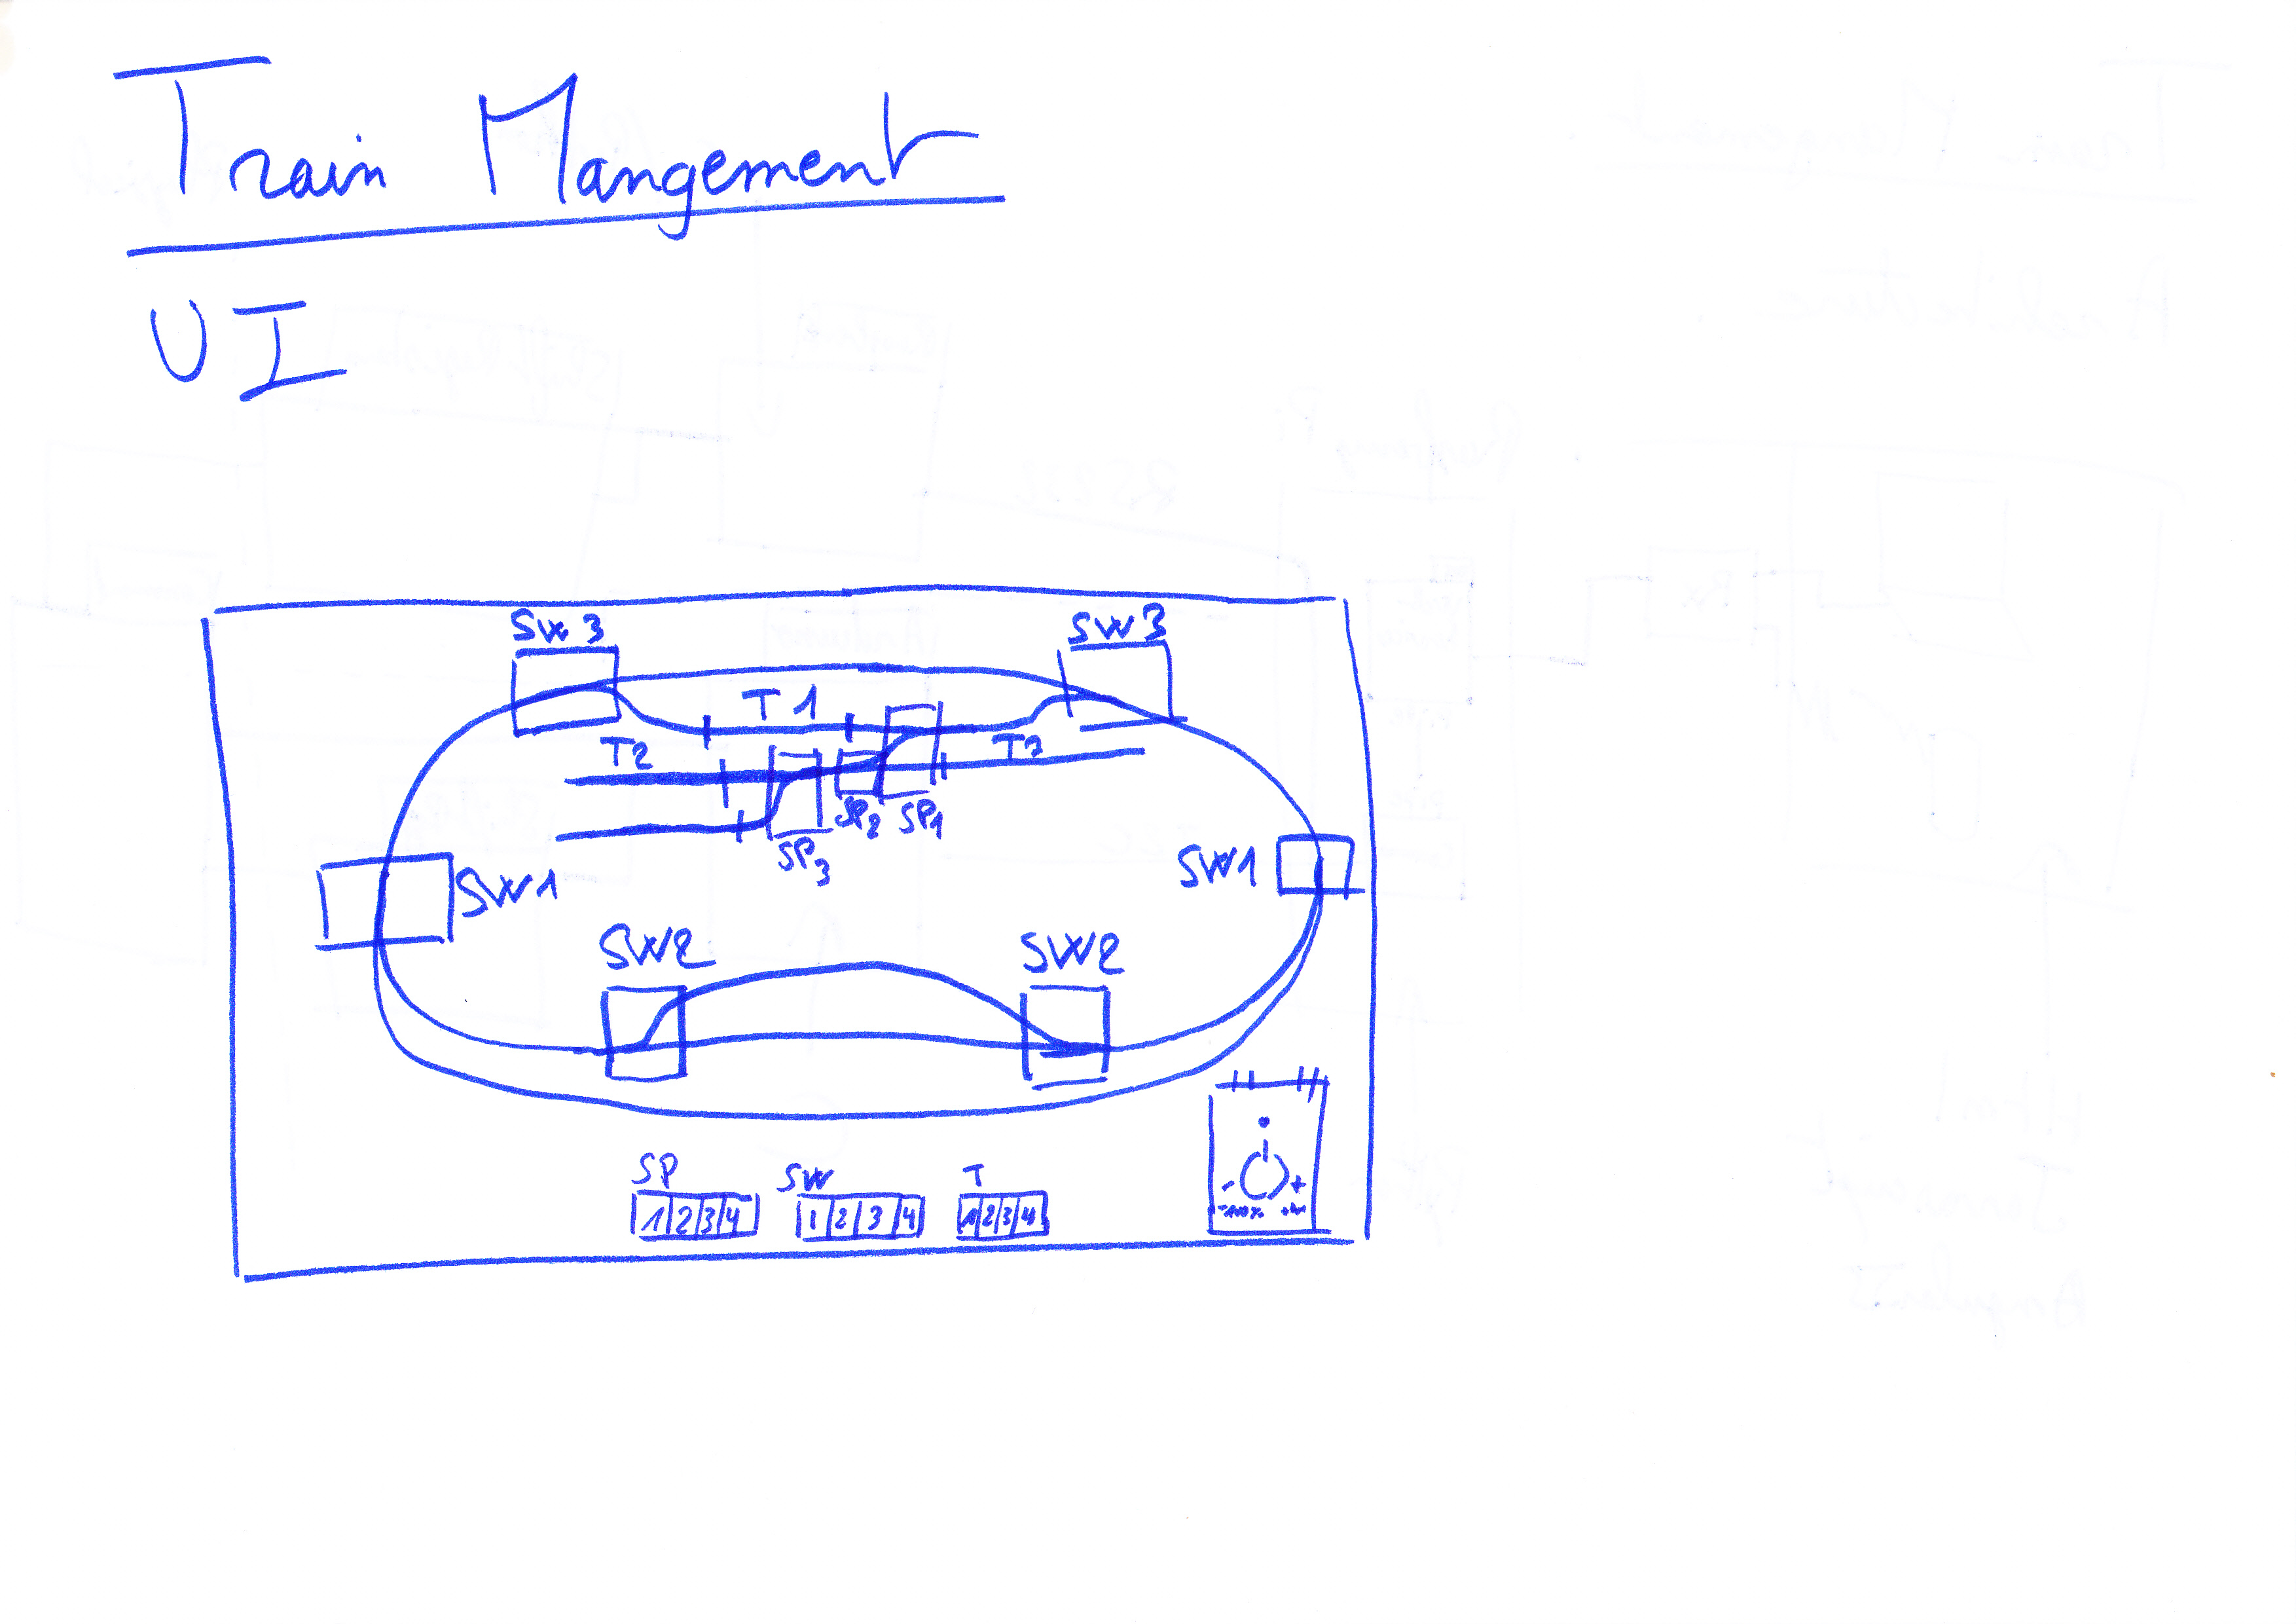 Train Mangement
UI
SW 3
SW3
T1
T2
T3
SP2
SP1
SP3
SW1
SW1
SW2
SW2
SP
SW
T
1 2 3 4
1 2 3 4
1 2 3 4
- +